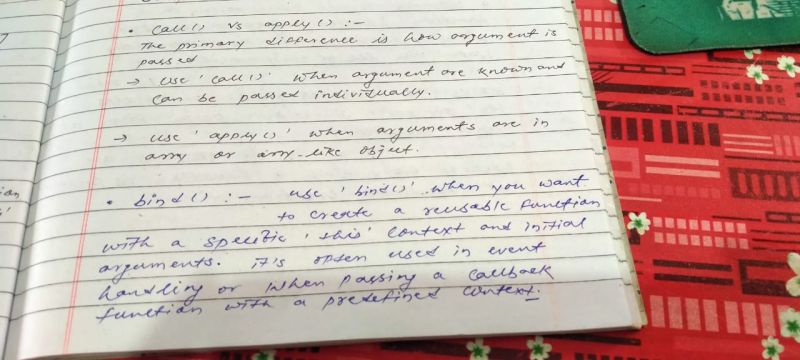 • Call() vs apply() :-
The primary difference is how argument is
passed
→ Use 'call()' when argument are known and
can be passed individually.
→ use 'apply()' when arguments are in
array or arry-like object.
• bind() :- use 'bind()' when you want
to create a reusable function
with a specific 'this' context and initial
arguments. it's often used in event
handling or when passing a callback
function with a predefined context.